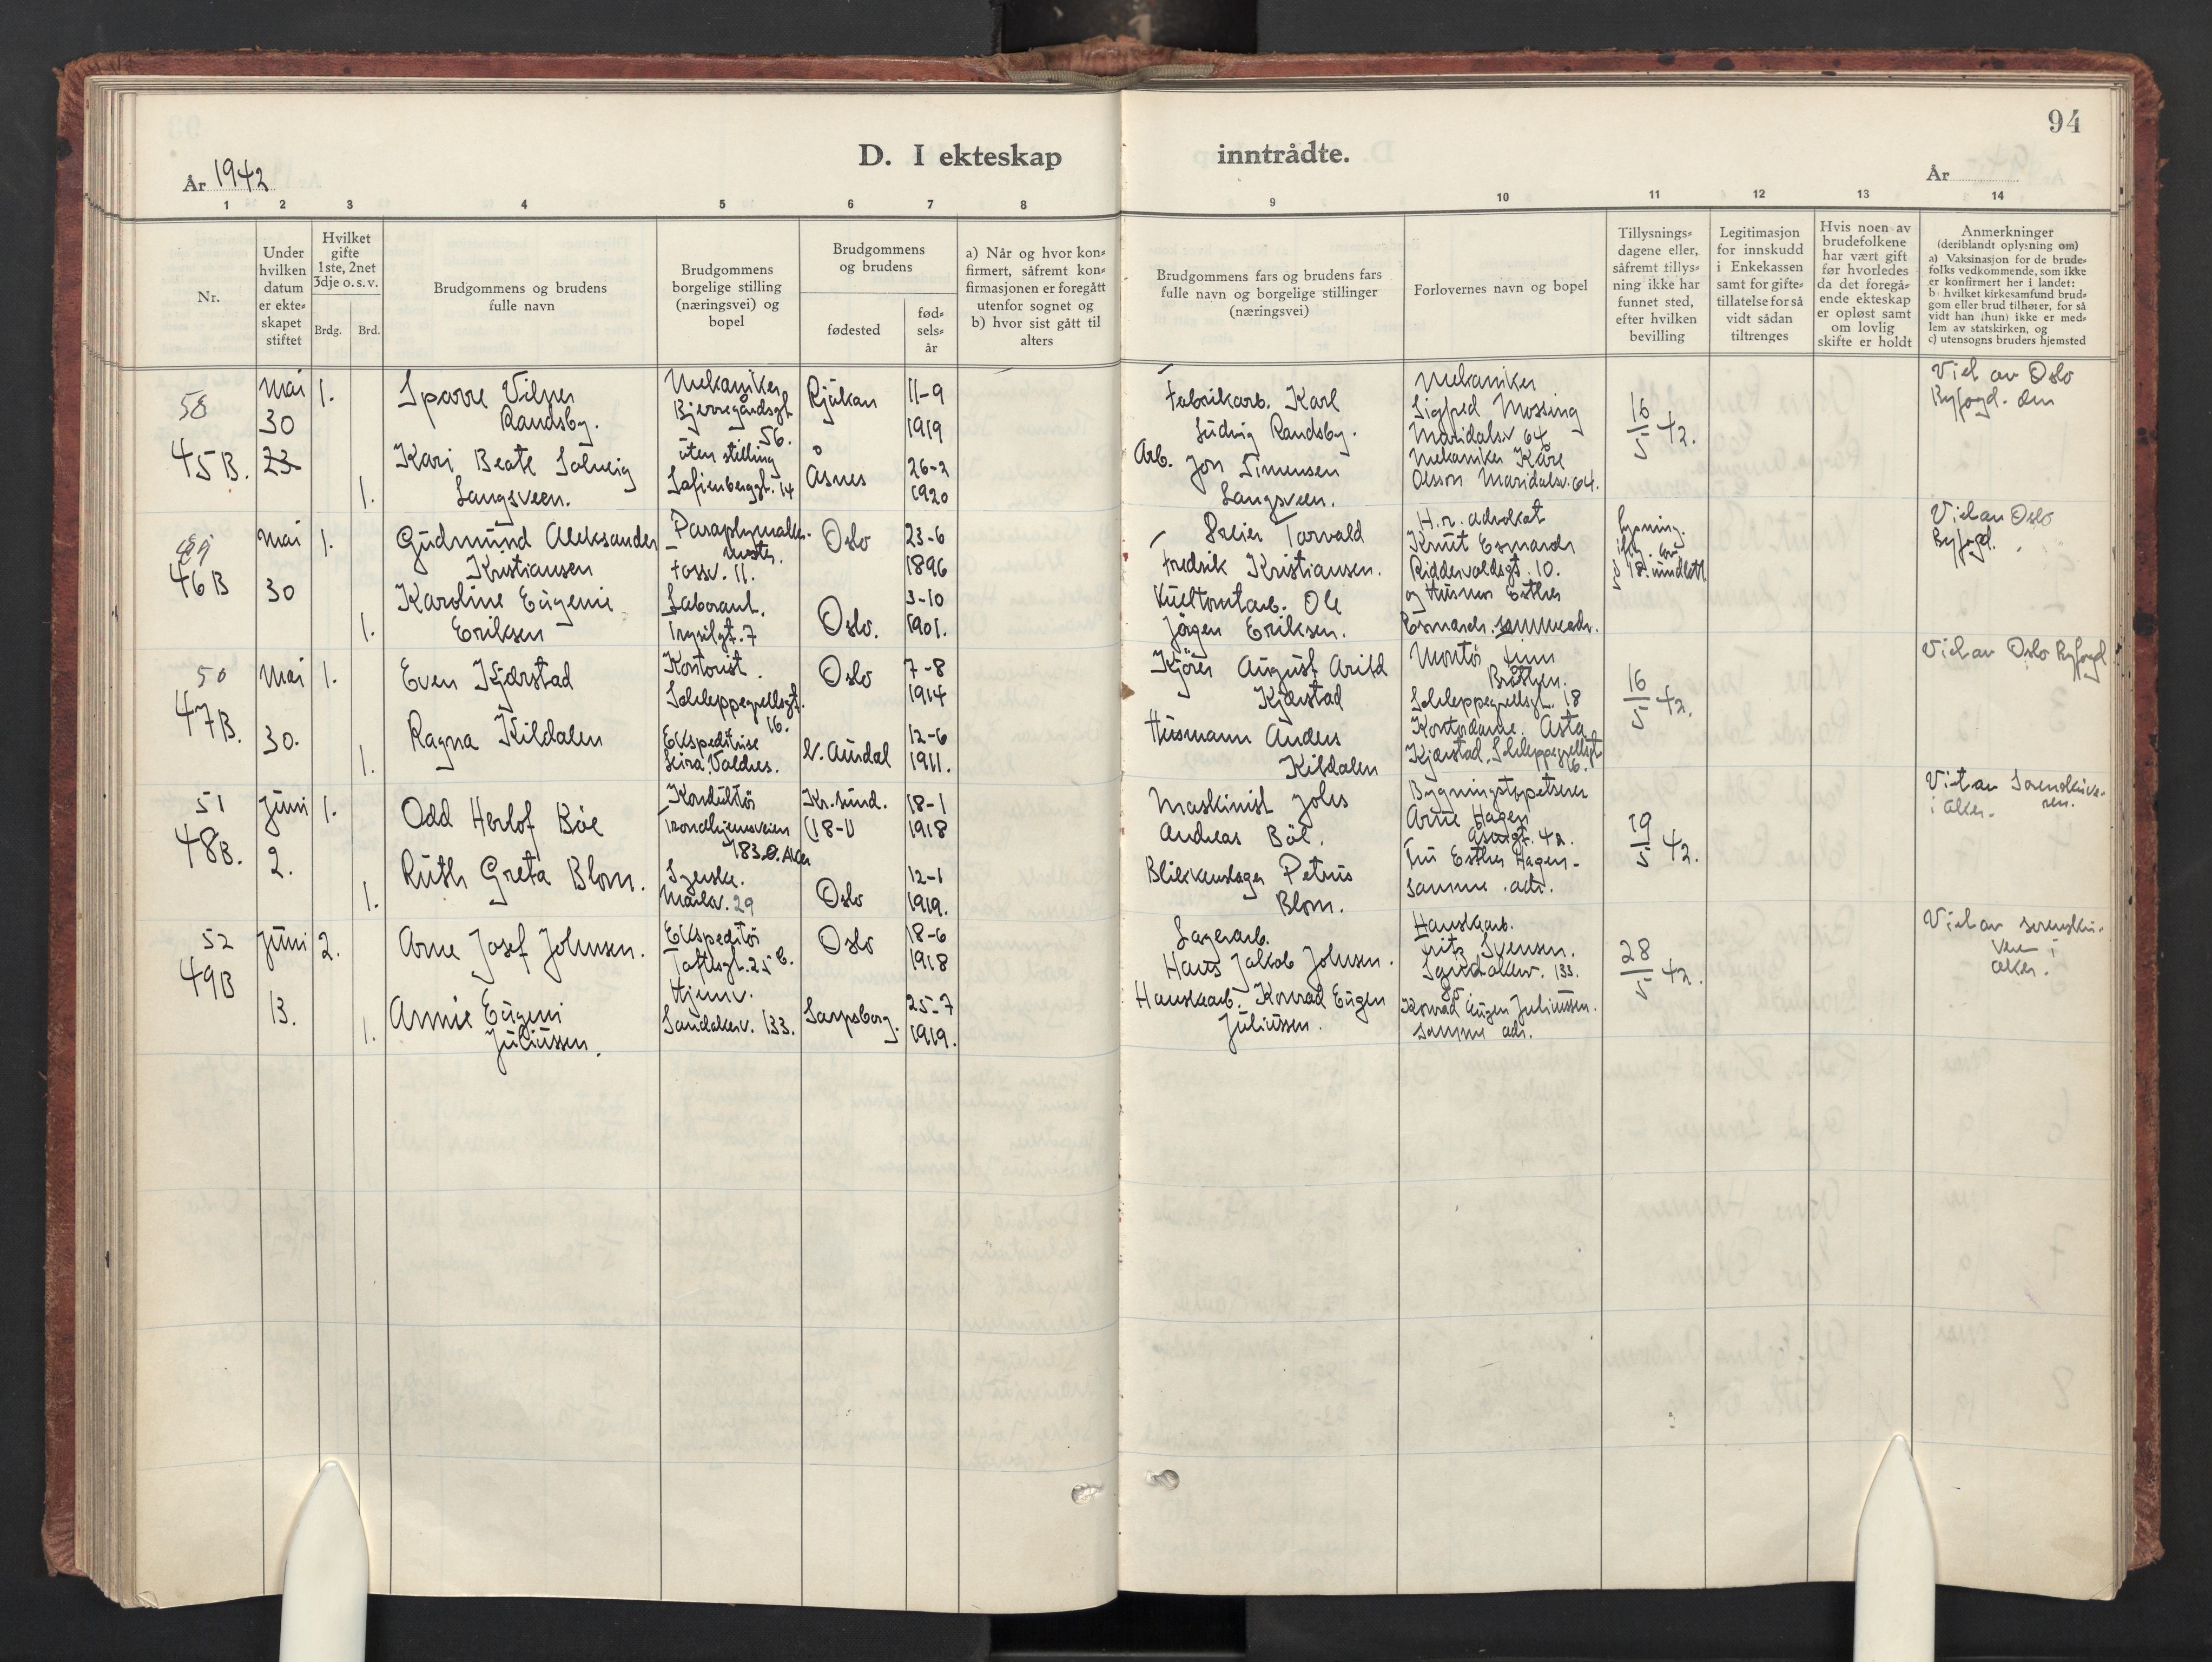 94
D. I ekteskap inntrådte.
År 1942
År
1 2 3 4 5 6 7 8 9 10 11 12 13 14
Nr.
Under
hvilken
datum
er ekte-
skapet
stiftet
Hvilket
gifte
1ste, 2net
3dje o. s. v.
Brdg. Brd.
Brudgommens og brudens
fulle navn
Brudgommens
borgelige stilling
(næringsvei) og
bopel
Brudgommens
og brudens
fødested
fød-
sels-
år
a) Når og hvor kon-
firmert, såfremt kon-
firmasjonen er foregått
utenfor sognet og
b) hvor sist gått til
alters
Brudgommens fars og brudens fars
fulle navn og borgelige stillinger
(næringsvei)
Forlovernes navn og bopel
Tillysnings-
dagene eller,
såfremt tillys-
ning ikke har
funnet sted,
efter hvilken
bevilling
Legitimasjon
for innskudd
i Enkekassen
samt for gifte-
tillatelse for så
vidt sådan
tiltrenges
Hvis noen av
brudefolkene
har vært gift
før hvorledes
da det foregå-
ende ekteskap
er opløst samt
om lovlig
skifte er holdt
Anmerkninger
(deriblandt oplysning om)
a) Vaksinasjon for de brude-
folks vedkommende, som ikke
er konfirmert her i landet:
b) hvilket kirkesamfund brud-
gom eller brud tilhører, for så
vidt han (hun) ikke er med-
lem av statskirken, og
c) utensogns bruders hjemsted
58
45 B.
mai
30
23
1.
1.
Sparre Vilner
Randsby.
Kari Beate Solveig
Langsveen.
Mekaniker
Bjerregårdsgt
56.
uten stilling
Sofienberggt. 14
Rjukan
Åsnes
11-9
1919
26-2
1920
Fabrikarb. Karl
Ludvig Randsby.
Arb. Jon Simensen
Langsveen.
Mekaniker
Sigfred Mossing
Maridalsv 64
Mekaniker Kåre
Olsson Maridalsv. 64.
16/5 42.
Viel av Oslo
Byfogd. den
49
46 B
mai
30
1.
1.
Gudmund Aleksander
Kristiansen
Karoline Eugenie
Eriksen
Fossv. 11.
Laborant.
Trysilgt. 7
Oslo
Oslo.
23-6
1896
3-10
1901.
Freier Torvald
Fredrik Kristiansen.
Ole
Jörgen Eriksen.
H.r. advokat
Knut Esmarch
Riddervoldsgt. 10.
og Husmor Esther
Esmarch. samme adr.
lysning
Viel av Oslo
Byfogd.
50
47 B.
mai
30.
1.
1.
Even Kjærstad
Ragna Kildalen
Kontorist.
Schleppegrellsgt.
16.
Ekspeditrise
Leira, Valdres.
Oslo
V. Aurdal
7-8
1914
12-6
1911.
Kjörer August Arild
Kjærstad
Husmann Anders
Kildalen
Montör Finn
Bråthen.
Schleppegrellsgt. 18
Kontordame Asta
Kjærstad. Schleppegrellsgt
16.
16/5 42.
Viel av Oslo Byfogd
51
48 B.
juni
2.
1.
1.
Odd Herlof Böe
Ruth Greta Blom.
Konduktör
Trondhjemsveien
183. Ö. Aker
Syerske.
Markv. 29
Kr. sund.
Oslo
18-1
1918
12-1
1919.
Maskinist Johs
Andreas Böe.
Blikkenslager Petrus
Blom.
Bygningstapetserer
Arne Hagen
Åsengt. 42.
Fru Esther Hagen-
samme adr.
19/5 42.
Viet av Sorenskrive-
ren.
i Aker.
52
49 B
juni
13.
2.
1.
Arne Josef Johnsen.
Annie Eugeni
Juliussen.
Ekspeditör
Toftesgt. 25 B.
Hjemv.
Sandakerv. 133.
Oslo
Sarpsborg.
18-6
1918
25-7
1919.
Lagerarb.
Hans Jakob Johnsen.
Hanskearb. Konrad Eugen
Juliussen.
Hanskearb.
Fritz Svensen.
Sandakerv. 133.
Konrad Eugen Juliussen.
samme adr.
28/5 42
Viel av sorenskri-
ver i
Aker.